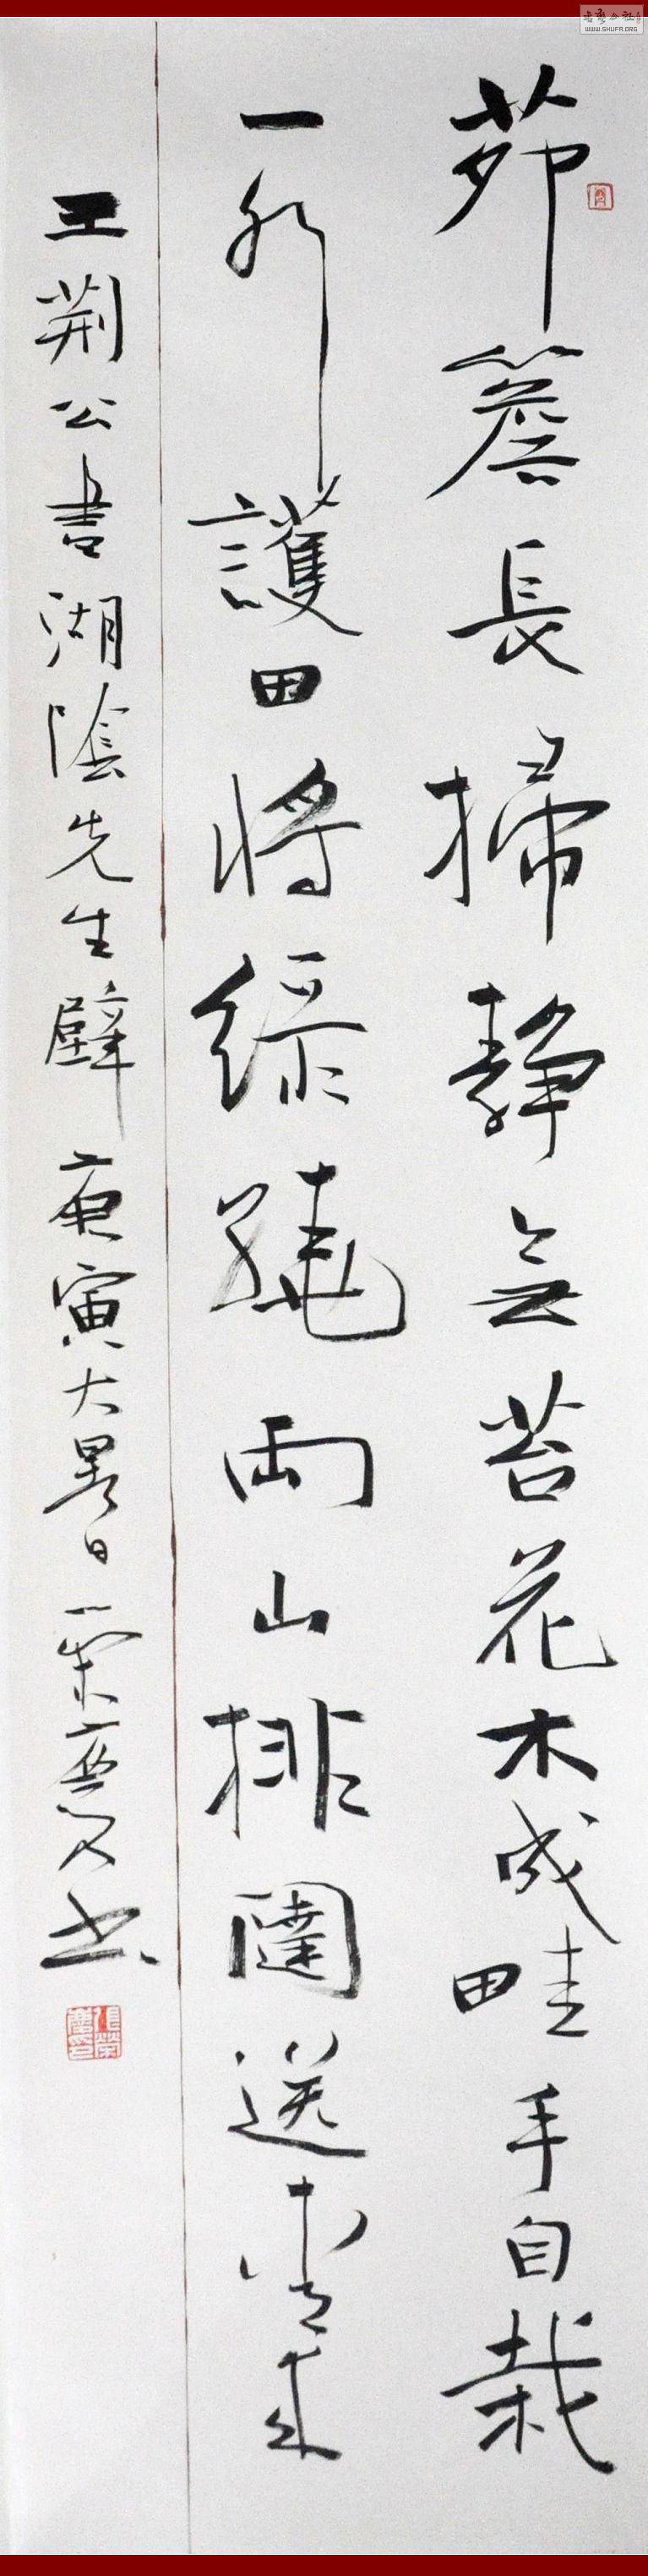 茆簷長掃靜無苔花木成畦手自栽
一水護田將綠繞兩山排闥送青來
王荆公書湖陰先生壁 庚寅大暑日 榮慶书
張榮慶印
WWW.SHUFA.ORG